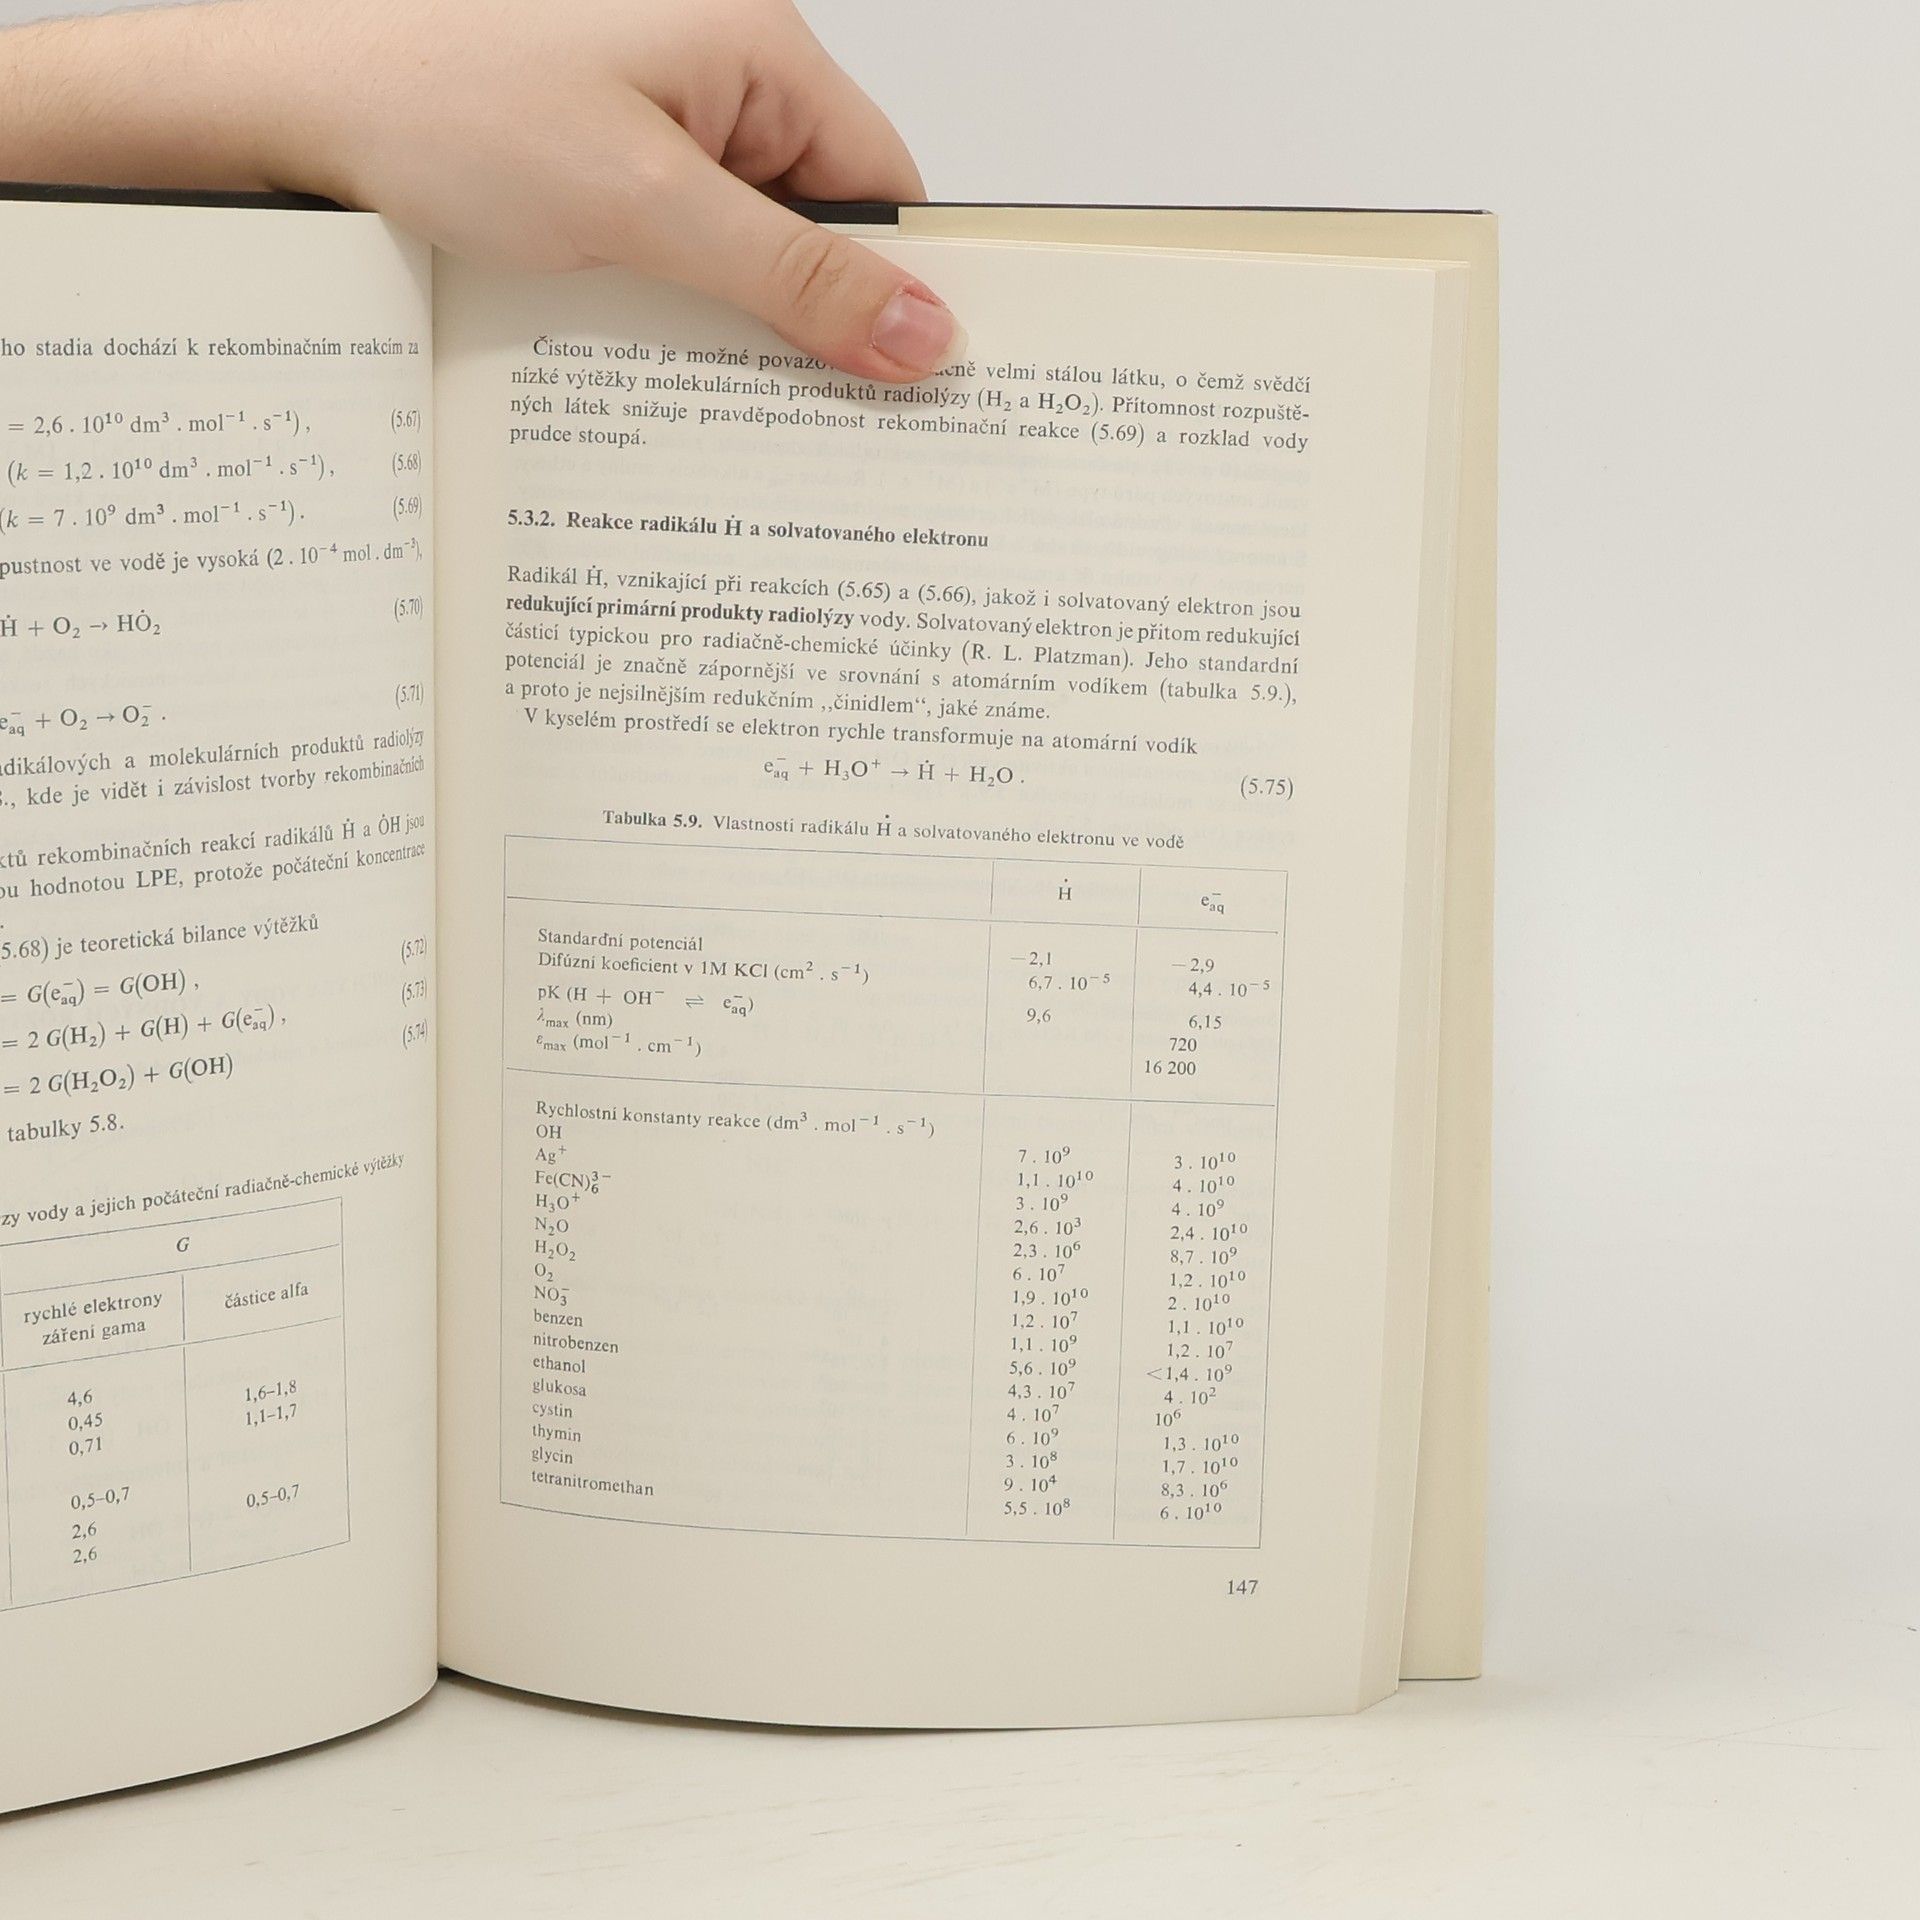 ho stadia dochází k rekombinačním reakcím za
= 2,6 . 10¹⁰ dm³ . mol⁻¹ . s⁻¹), (5.67)
(k = 1,2 . 10¹⁰ dm³ . mol⁻¹ . s⁻¹), (5.68)
(k = 7 . 10⁹ dm³ . mol⁻¹ . s⁻¹). (5.69)
pustnost ve vodě je vysoká (2 . 10⁻⁴ mol . dm⁻³),
Ḣ + O₂ → HȮ₂ (5.70)
e⁻aq + O₂ → O₂⁻ . (5.71)
dikálových a molekulárních produktů radiolýzy
., kde je vidět i závislost tvorby rekombinačních
ktů rekombinačních reakcí radikálů Ḣ a ȮH jsou
ou hodnotou LPE, protože počáteční koncentrace
.
5.68) je teoretická bilance výtěžků
= G(e⁻aq) = G(OH) , (5.72)
= 2 G(H₂) + G(H) + G(e⁻aq) , (5.73)
= 2 G(H₂O₂) + G(OH) (5.74)
tabulky 5.8.
zy vody a jejich počáteční radiačně-chemické výtěžky
G
rychlé elektrony
záření gama
částice alfa
4,6 1,6–1,8
0,45 1,1–1,7
0,71
0,5–0,7 0,5–0,7
2,6
2,6
Čistou vodu je možné velmi stálou látku, o čemž svědčí
nízké výtěžky molekulárních produktů radiolýzy (H₂ a H₂O₂). Přítomnost rozpuště-
ných látek snižuje pravděpodobnost rekombinační reakce (5.69) a rozklad vody
prudce stoupá.
5.3.2. Reakce radikálu Ḣ a solvatovaného elektronu
Radikál Ḣ, vznikající při reakcích (5.65) a (5.66), jakož i solvatovaný elektron jsou
redukující primární produkty radiolýzy vody. Solvatovaný elektron je přitom redukující
částicí typickou pro radiačně-chemické účinky (R. L. Platzman). Jeho standardní
potenciál je značně zápornější ve srovnání s atomárním vodíkem (tabulka 5.9.),
a proto je nejsilnějším redukčním ,,činidlem“, jaké známe.
V kyselém prostředí se elektron rychle transformuje na atomární vodík
e⁻aq + H₃O⁺ → Ḣ + H₂O . (5.75)
Tabulka 5.9. Vlastnosti radikálu Ḣ a solvatovaného elektronu ve vodě
Ḣ e⁻aq
Standardní potenciál −2,1 −2,9
Difúzní koeficient v 1M KCl (cm² . s⁻¹) 6,7 . 10⁻⁵ 4,4 . 10⁻⁵
pK (H + OH⁻ ⇌ e⁻aq) 9,6 6,15
λmax (nm) 720
εmax (mol⁻¹ . cm⁻¹) 16 200
Rychlostní konstanty reakce (dm³ . mol⁻¹ . s⁻¹)
OH 7 . 10⁹ 3 . 10¹⁰
Ag⁺ 1,1 . 10¹⁰ 4 . 10¹⁰
Fe(CN)₆³⁻ 3 . 10⁹ 4 . 10⁹
H₃O⁺ 2,6 . 10³ 2,4 . 10¹⁰
N₂O 2,3 . 10⁶ 8,7 . 10⁹
H₂O₂ 6 . 10⁷ 1,2 . 10¹⁰
O₂ 1,9 . 10¹⁰ 2 . 10¹⁰
NO₃⁻ 1,2 . 10⁷ 1,1 . 10¹⁰
benzen 1,1 . 10⁹ 1,2 . 10⁷
nitrobenzen 5,6 . 10⁹ <1,4 . 10⁹
ethanol 4,3 . 10⁷ 4 . 10²
glukosa 4 . 10⁷ 10⁶
cystin 6 . 10⁹ 1,3 . 10¹⁰
thymin 3 . 10⁸ 1,7 . 10¹⁰
glycin 9 . 10⁴ 8,3 . 10⁶
tetranitromethan 5,5 . 10⁸ 6 . 10¹⁰
147